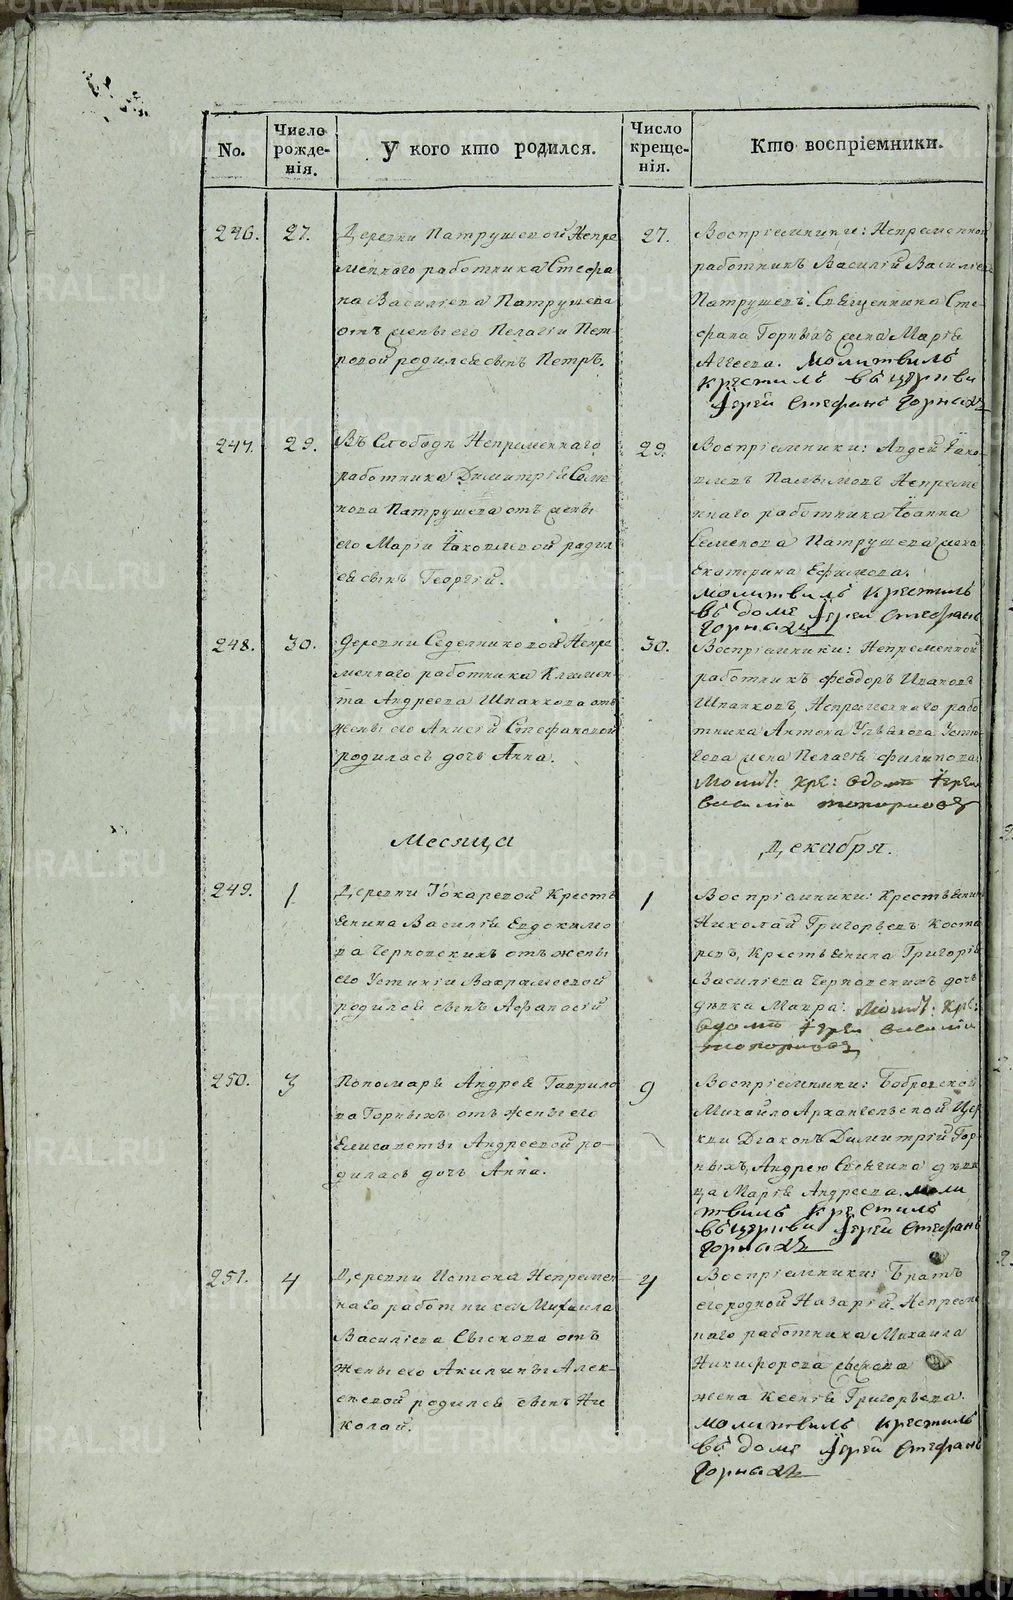 No.
Число рожденія.
У кого кто родился.
Число крещенія.
Кто воспріемники.
246.
27.
Деревни Патрушевой Непре
меннаго работника Стефа
на Василіева Патрушева
отъ жены его Пелагіи Пет-
ровой родился сынъ Петръ.
27.
Воспріемники: Непременной
работникъ Василій Василіевъ
Патрушевъ. Священника Сте-
фана Горныхъ жена Марія
Аггеева. Молитвилъ
крестилъ въ церкви
Іерей Стефанъ Горныхъ
247.
29.
Въ Слободѣ Непременнаго
работника Димитрія Семе
нова Патрушева отъ жены
его Маріи Іаковлевой родил
ся сынъ Георгій.
29.
Воспріемники: Авдей Іако-
влевъ Непреме
ннаго работника Іоанна
Семенова Патрушева жена
Екатерина Ефимова.
молитвилъ крестилъ
въ доме Іерей Стефанъ
Горныхъ
248.
30.
Деревни Седельниковой Непре
меннаго работника Климен-
та Андреева Шпанкова отъ
жены его Анисіи Стефановой
родилась дочь Анна.
30.
Воспріемники: Непременной
работникъ Феодоръ Ивановъ
Шпанковъ, Непременнаго рабо
тника Антона
жена Пелагія Филипова.
Молит: кре: въ доме Іерей
Василій Топорковъ
Месяца
Декабря.
249.
1
Деревни Токаревой Кресть
янина Василія Евдокимо
ва Черновскихъ отъ жены
его Устиніи Вахрамеевой
родился сынъ Афанасій
1
Воспріемники: Крестьянинъ
Николай Григорьевъ Коста
ревъ, Крестьянина Григорія
Василіева Черновскихъ дочь
девка Мавра: Молит: Кре:
въ доме Іерей Василій
Топорковъ
250.
3
Пономаря Андрея Гаврило
ва Горныхъ отъ жены его
Елисаветы Андреевой ро-
дилась дочь Анна.
9
Воспріемники: Бобровской
Михайло Архангельской Цер
кви Діаконъ Димитрій Гор-
ныхъ, Андрею девица
Марія Андреева. моли
твилъ крестилъ
въ церкви Іерей Стефанъ
Горныхъ
251.
4
Деревни Истока Непремен
наго работника Михаила
Василіева Сыскова отъ
жены его Акилины Алек-
сеевой родился сынъ Ни
колай.
4
Воспріемники: Братъ
его родной Назарій. Непремен
наго работника Михаила
Никифорова Сыскова
жена Ксенія Григорьева.
молитвилъ крестилъ
въ доме Іерей Стефанъ
Горныхъ
METRIKI.GASO-URAL.RU